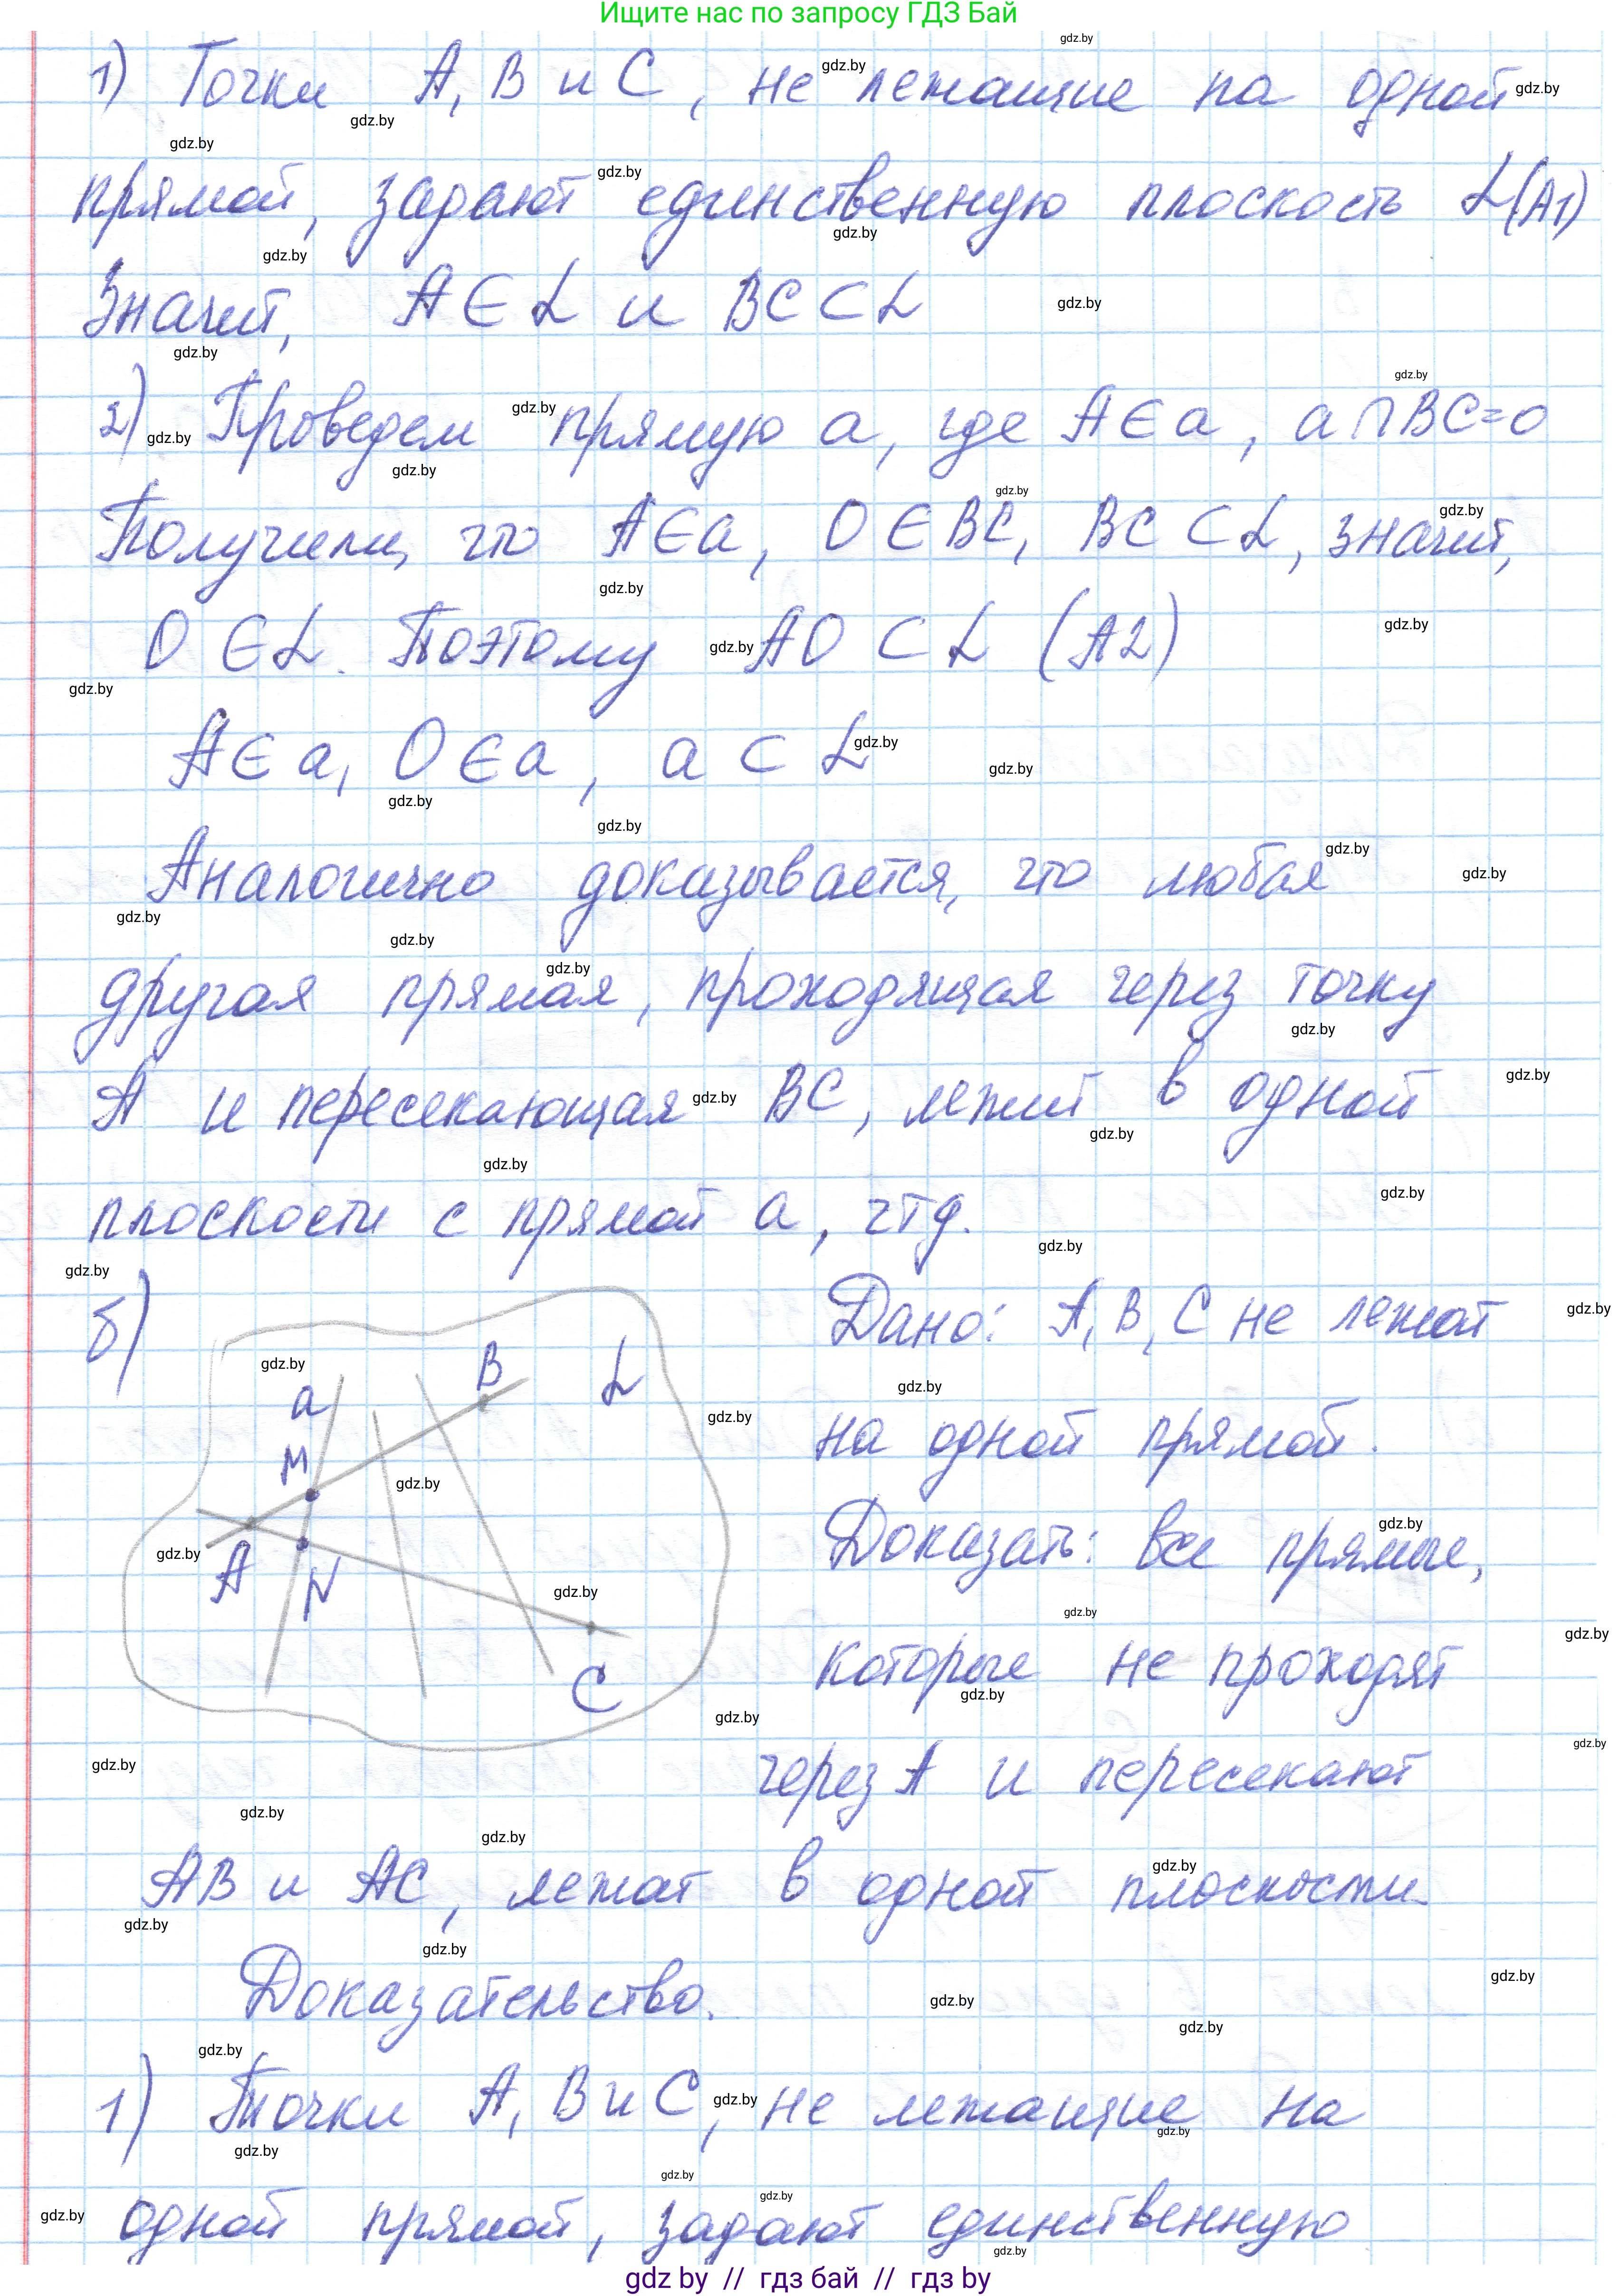 Ищите нас по запросу ГДЗ Бай
1) Точки A, B и C, не лежащие на одной
прямой, задают единственную плоскость α(A1)
Значит, A ∈ α и BC ⊂ α
2) Проведем прямую a, где A ∈ a, a ∩ BC = O
Получили, что A ∈ a, O ∈ BC, BC ⊂ α, значит,
O ∈ α. Поэтому AO ⊂ α (A2)
A ∈ a, O ∈ a, a ⊂ α
Аналогично доказывается, что любая
другая прямая, проходящая через точку
A и пересекающая BC, лежит в одной
плоскости с прямой a, чтд.
б)
a
M
B
α
A
N
C
Дано: A, B, C не лежат
на одной прямой.
Доказать: все прямые,
которые не проходят
через A и пересекают
AB и AC, лежат в одной плоскости.
Доказательство.
1) Точки A, B и C, не лежащие на
одной прямой, задают единственную
gdz by // гдз бай // гдз by